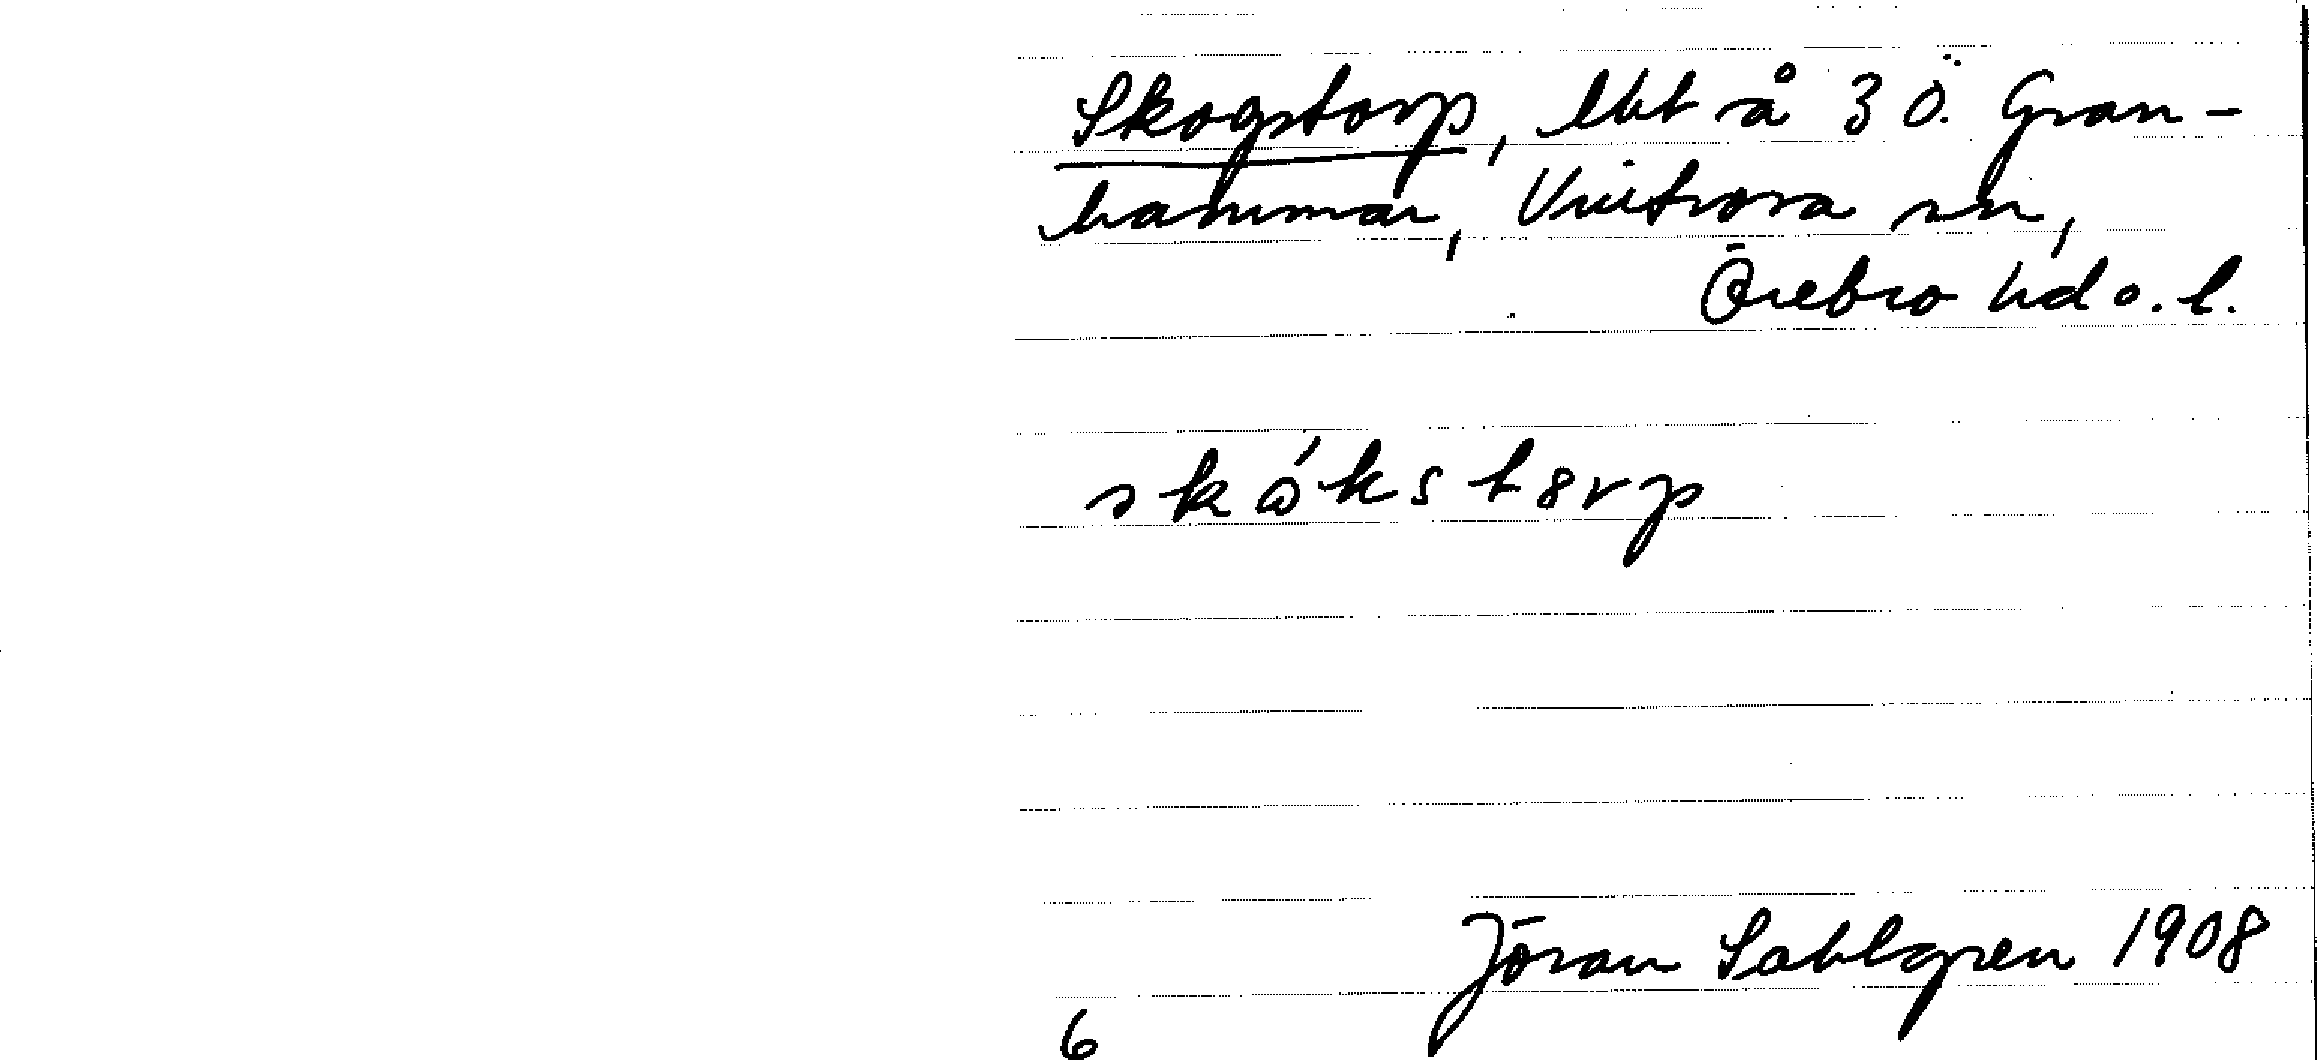 Skogstorp, lht å 3 Ö. Gran-
hammar, Vintrosa sn,
Örebro hd o. l.
skóks t8rp
Jöran Sahlgren 1908
6